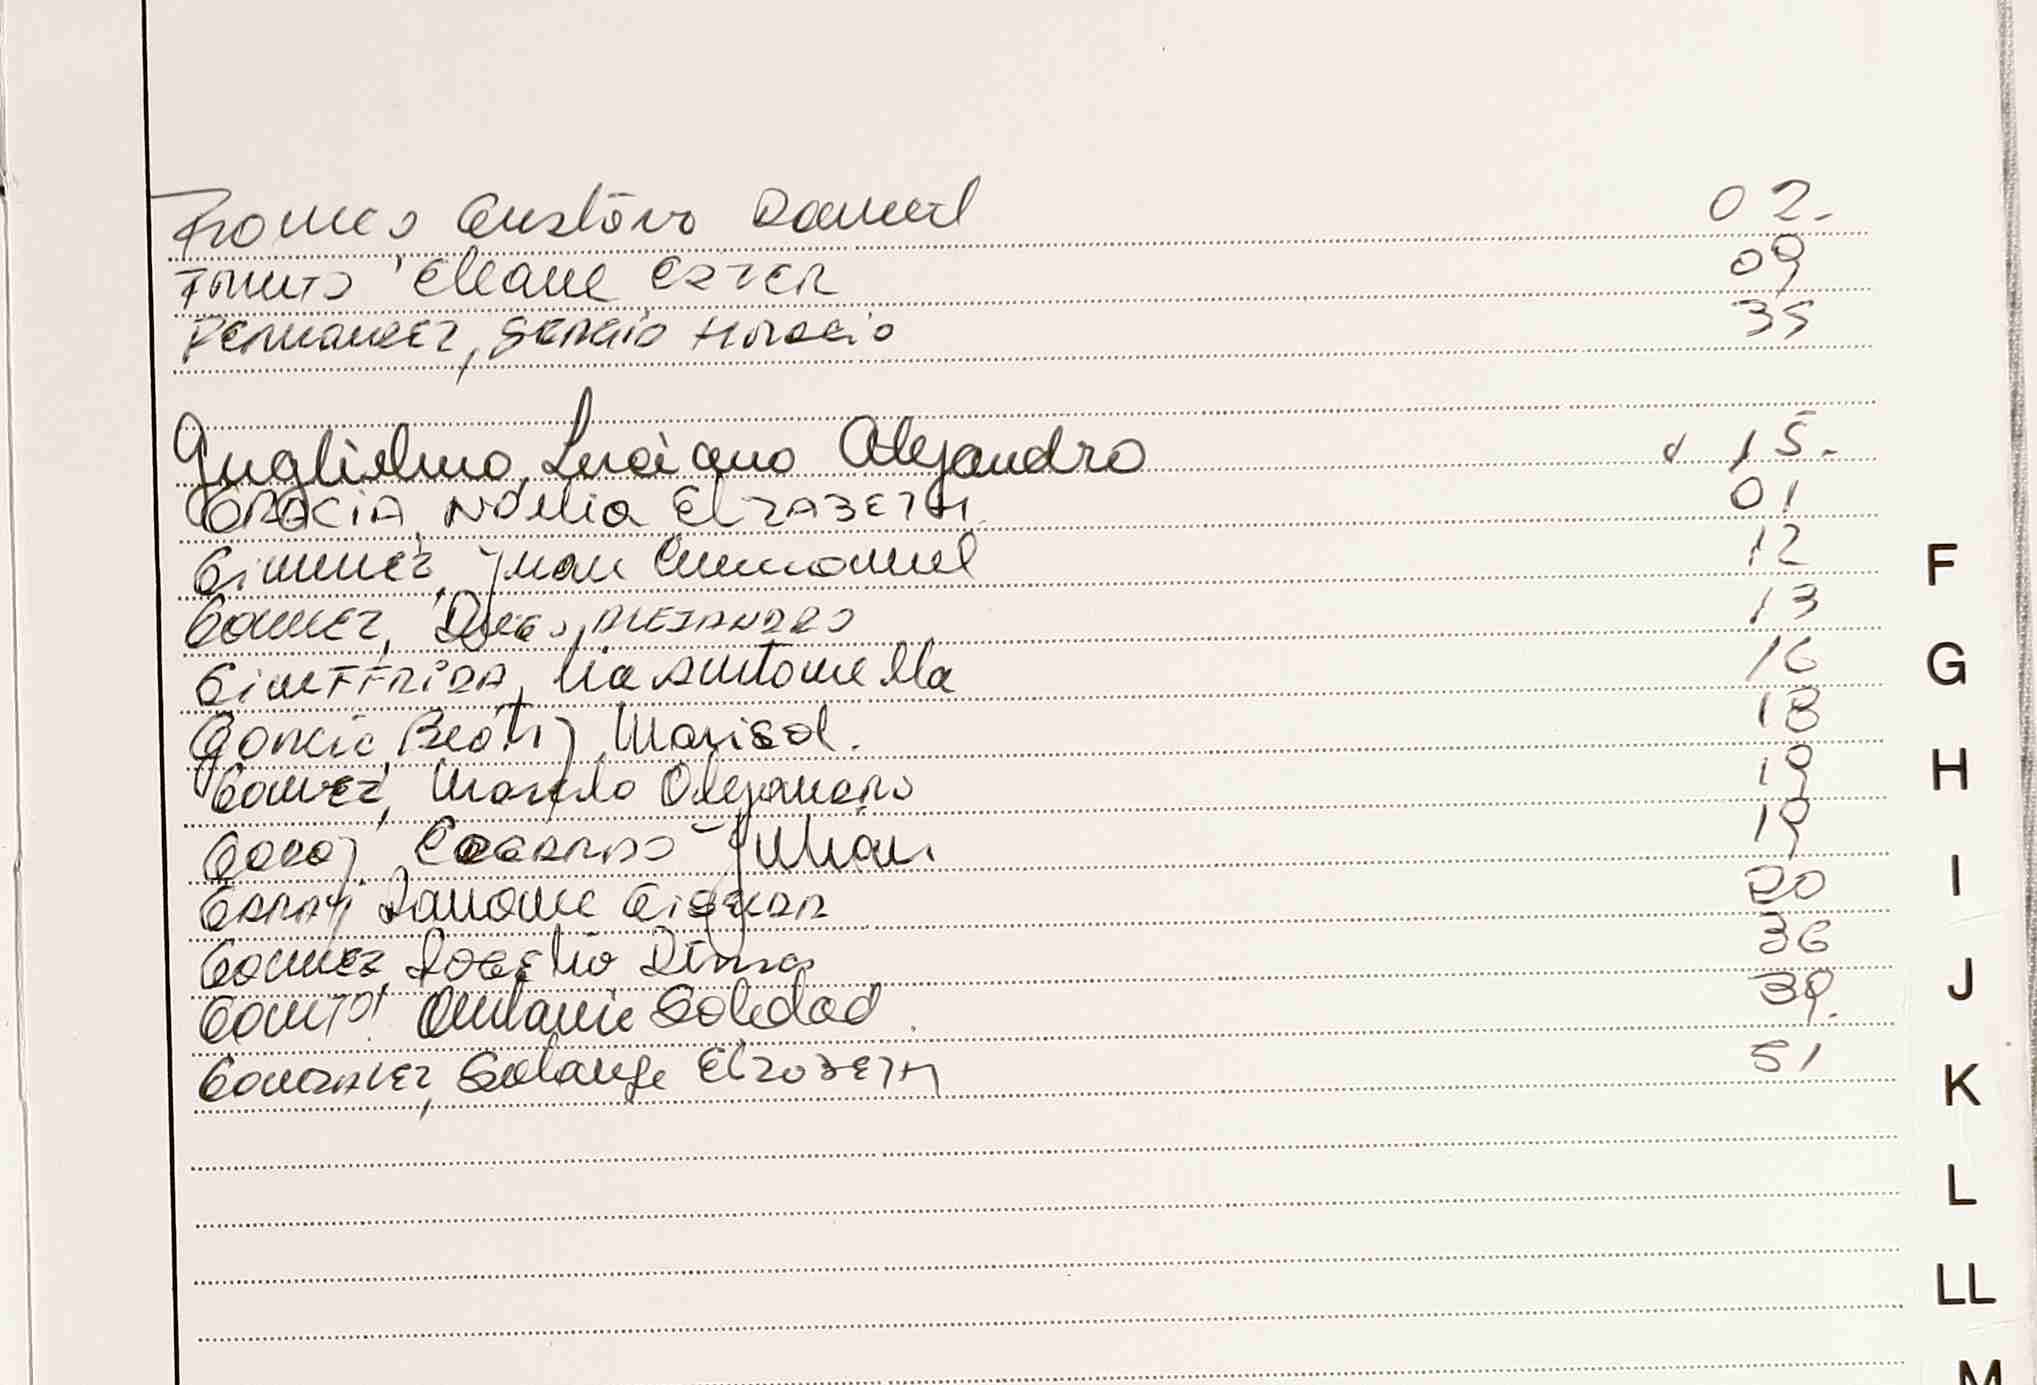 Franco Gustavo Daniel 02.
Eliane Ester 09
Fernandez, Sergio Horacio 35
Guglielmo, Luciano Alejandro 15.
GARCIA, Noelia ElizABETH 01
Gimenez, Juan Emmanuel 12
Gomez, Diego, ALEJANDRO 13
GiuFFRIDA, Lia Antonella 16
Garcia, Beatriz Marisol. 18
Gomez, Marcelo Alejandro 19
Godoy Edgardo Julian 19
Garay 20
Gomez Rogelio 36
Soledad 39.
Gonzalez, Solange ElizabETH 51
F
G
H
I
J
K
L
LL
M